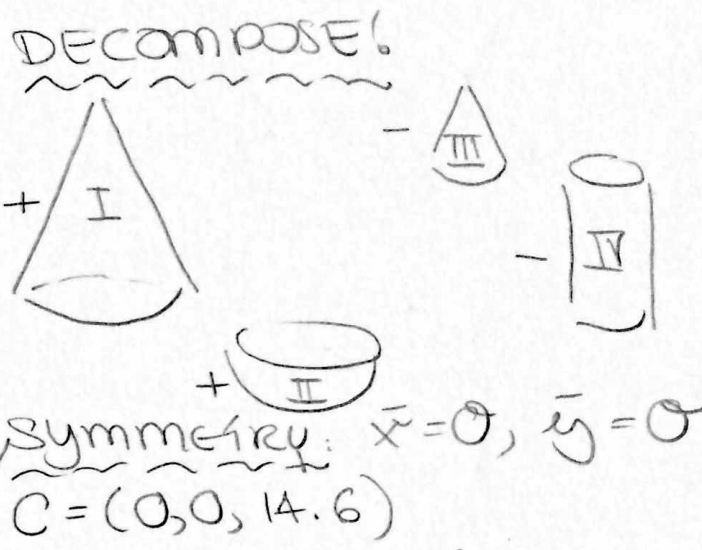 DECOMPOSE!
- III
+ I
- IV
+ II
Symmetry: x̄=0, ȳ=0
C=(0,0,14.6)